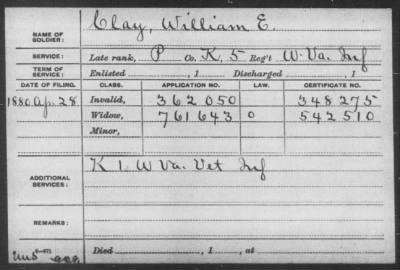 NAME OF SOLDIER: Clay, William E.
SERVICE: Late rank, P Co. K, 5 Reg't W. Va. Inf
TERM OF SERVICE: Enlisted , 1 Discharged , 1
DATE OF FILING. CLASS. APPLICATION NO. LAW. CERTIFICATE NO.
1880 Ap. 28 Invalid, 362050 348275
Widow, 761643 0 542510
Minor,
ADDITIONAL SERVICES: K 1, W Va. Vet Inf
REMARKS:
Died , 1 , at